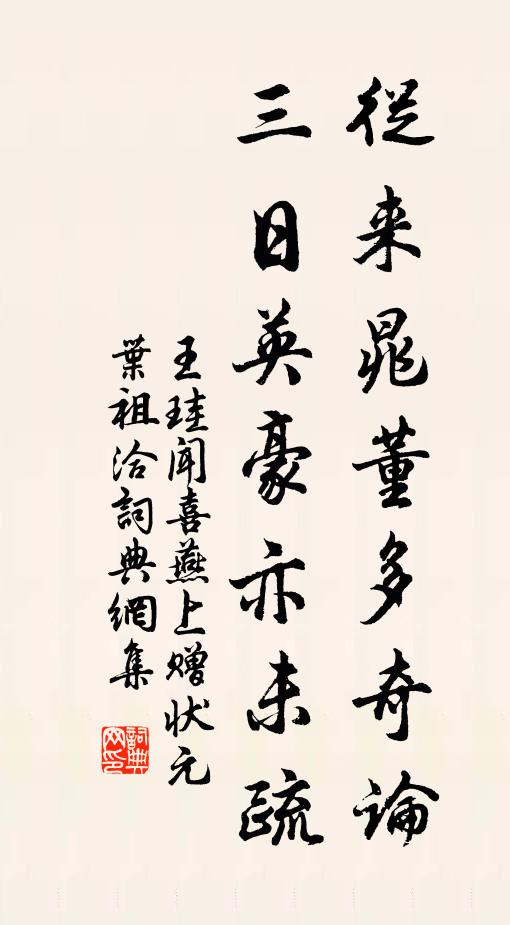 從来晁董多奇論
三日英豪亦未疏
王珪闻喜燕上赠状元
葉祖洽詞典網集
詞典网印